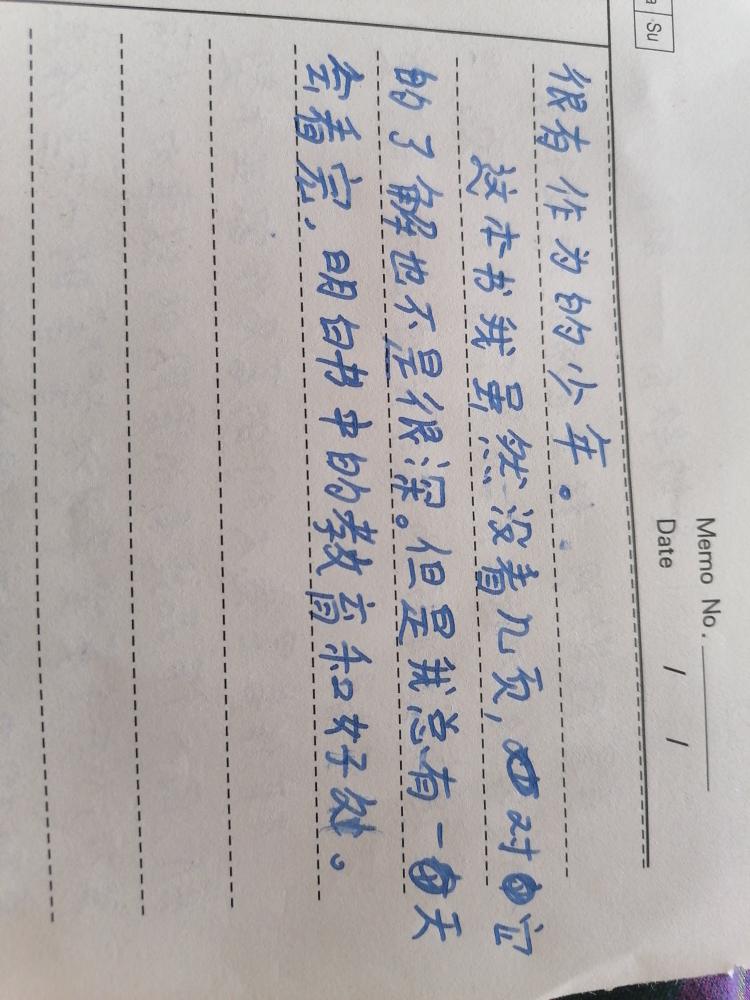 Su
Memo No.
Date / /
很有作为的少年。
这本书我虽然没看几页,对它
的了解也不是很深。但是我总有一天
会看完.明白书中的教育和好处。